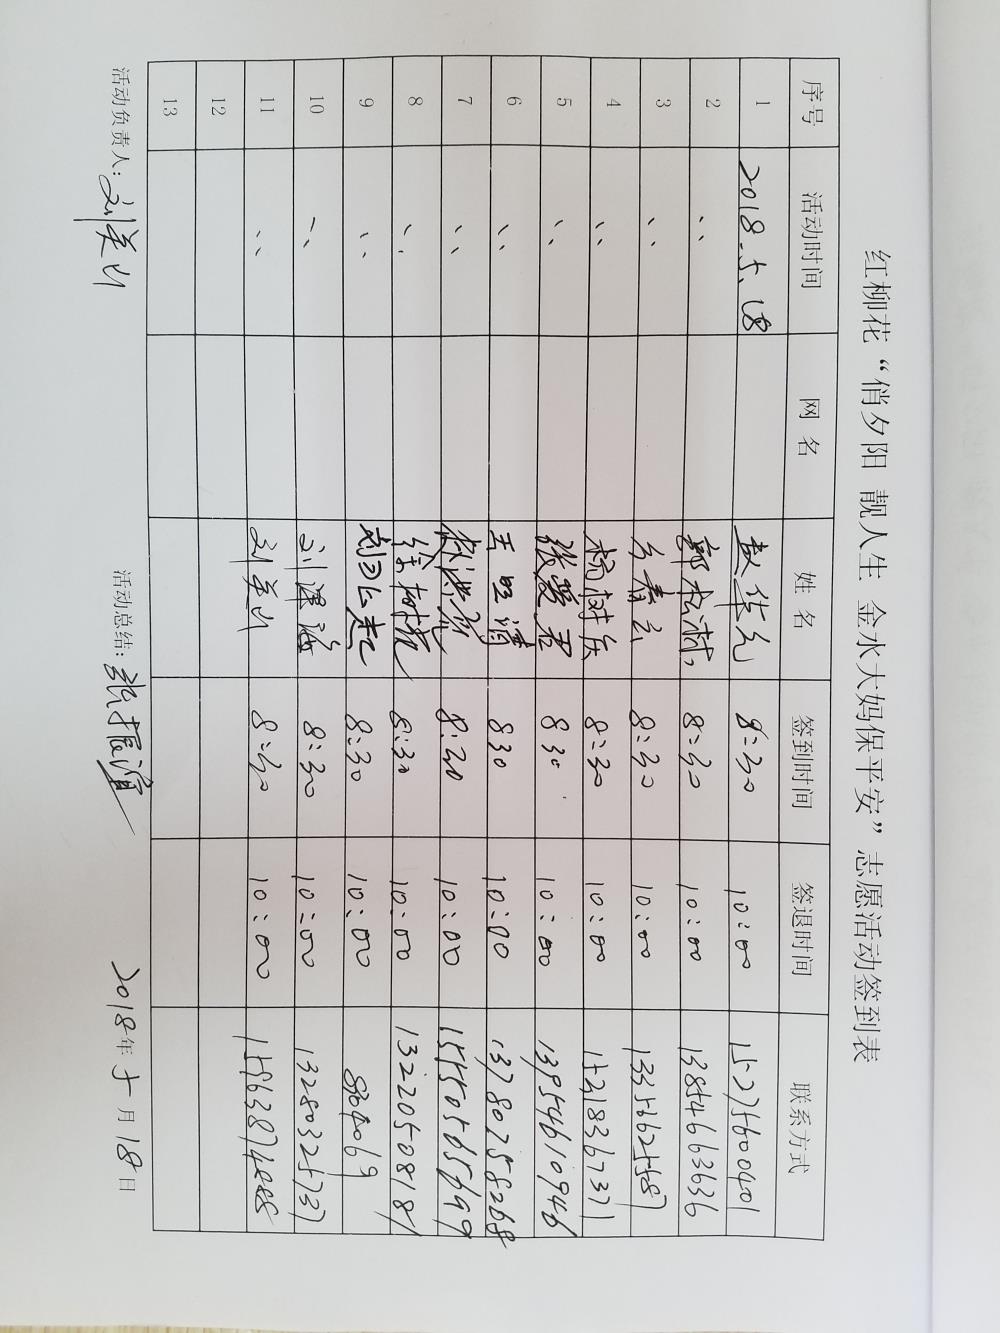 红柳花“俏夕阳 靓人生 金水大妈保平安”志愿活动签到表
序号 活动时间 网名 姓名 签到时间 签退时间 联系方式
1 2018.5.18 赵华允 8:30 10:00 15275600401
2 〃 郭松淋 8:30 10:00 13854663636
3 〃 8:30 10:00 13356625587
4 〃 杭树兵 8:30 10:00 15318367371
5 〃 张爱君 830 10:00 13954610946
6 〃 830 10:00 13780758268
7 〃 8:30 10:00 15550565699
8 〃 徐树花 8:30 10:00 13220508181
9 〃 8:30 10:00 8804069
10 〃 刘泽海 8:30 10:00 13280325737
11 〃 刘美山 8:30 10:00 15963874888
12
13
活动负责人:刘美山 活动总结:张振谊 2018年5月18日